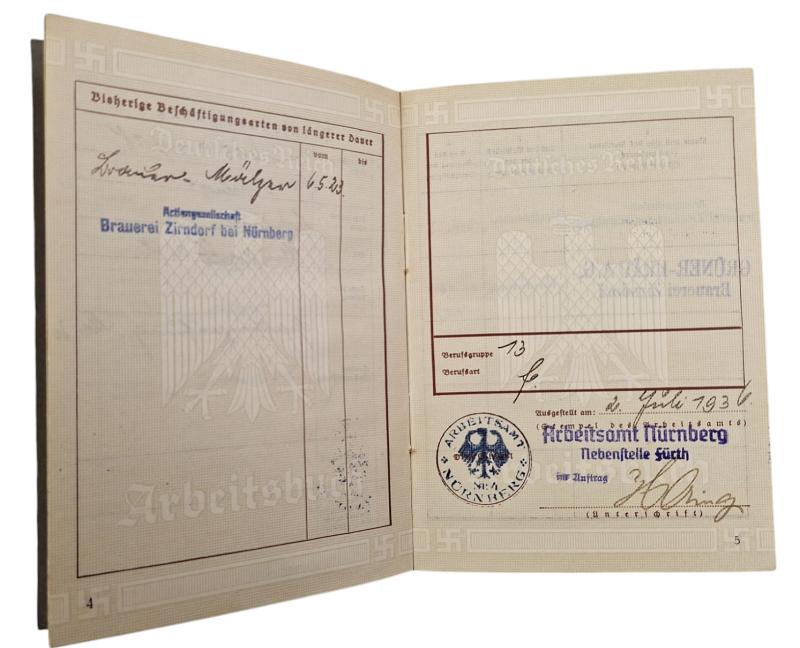 Bisherige Beschäftigungsarten von längerer Dauer
vom
bis
Brauer- Mälzer 6.5.23.
Actiengesellschaft
Brauerei Zirndorf bei Nürnberg
Deutsches Reich
Arbeitsbuch
4
Deutsches Reich
Berufsgruppe 13
Berufsart
Ausgestellt am: 2. Juli 1936.
(Stempel des Arbeitsamts)
Arbeitsamt Nürnberg
Nebenstelle Fürth
im Auftrag
(Unterschrift)
ARBEITSAMT
Nr. 4
NÜRNBERG
5